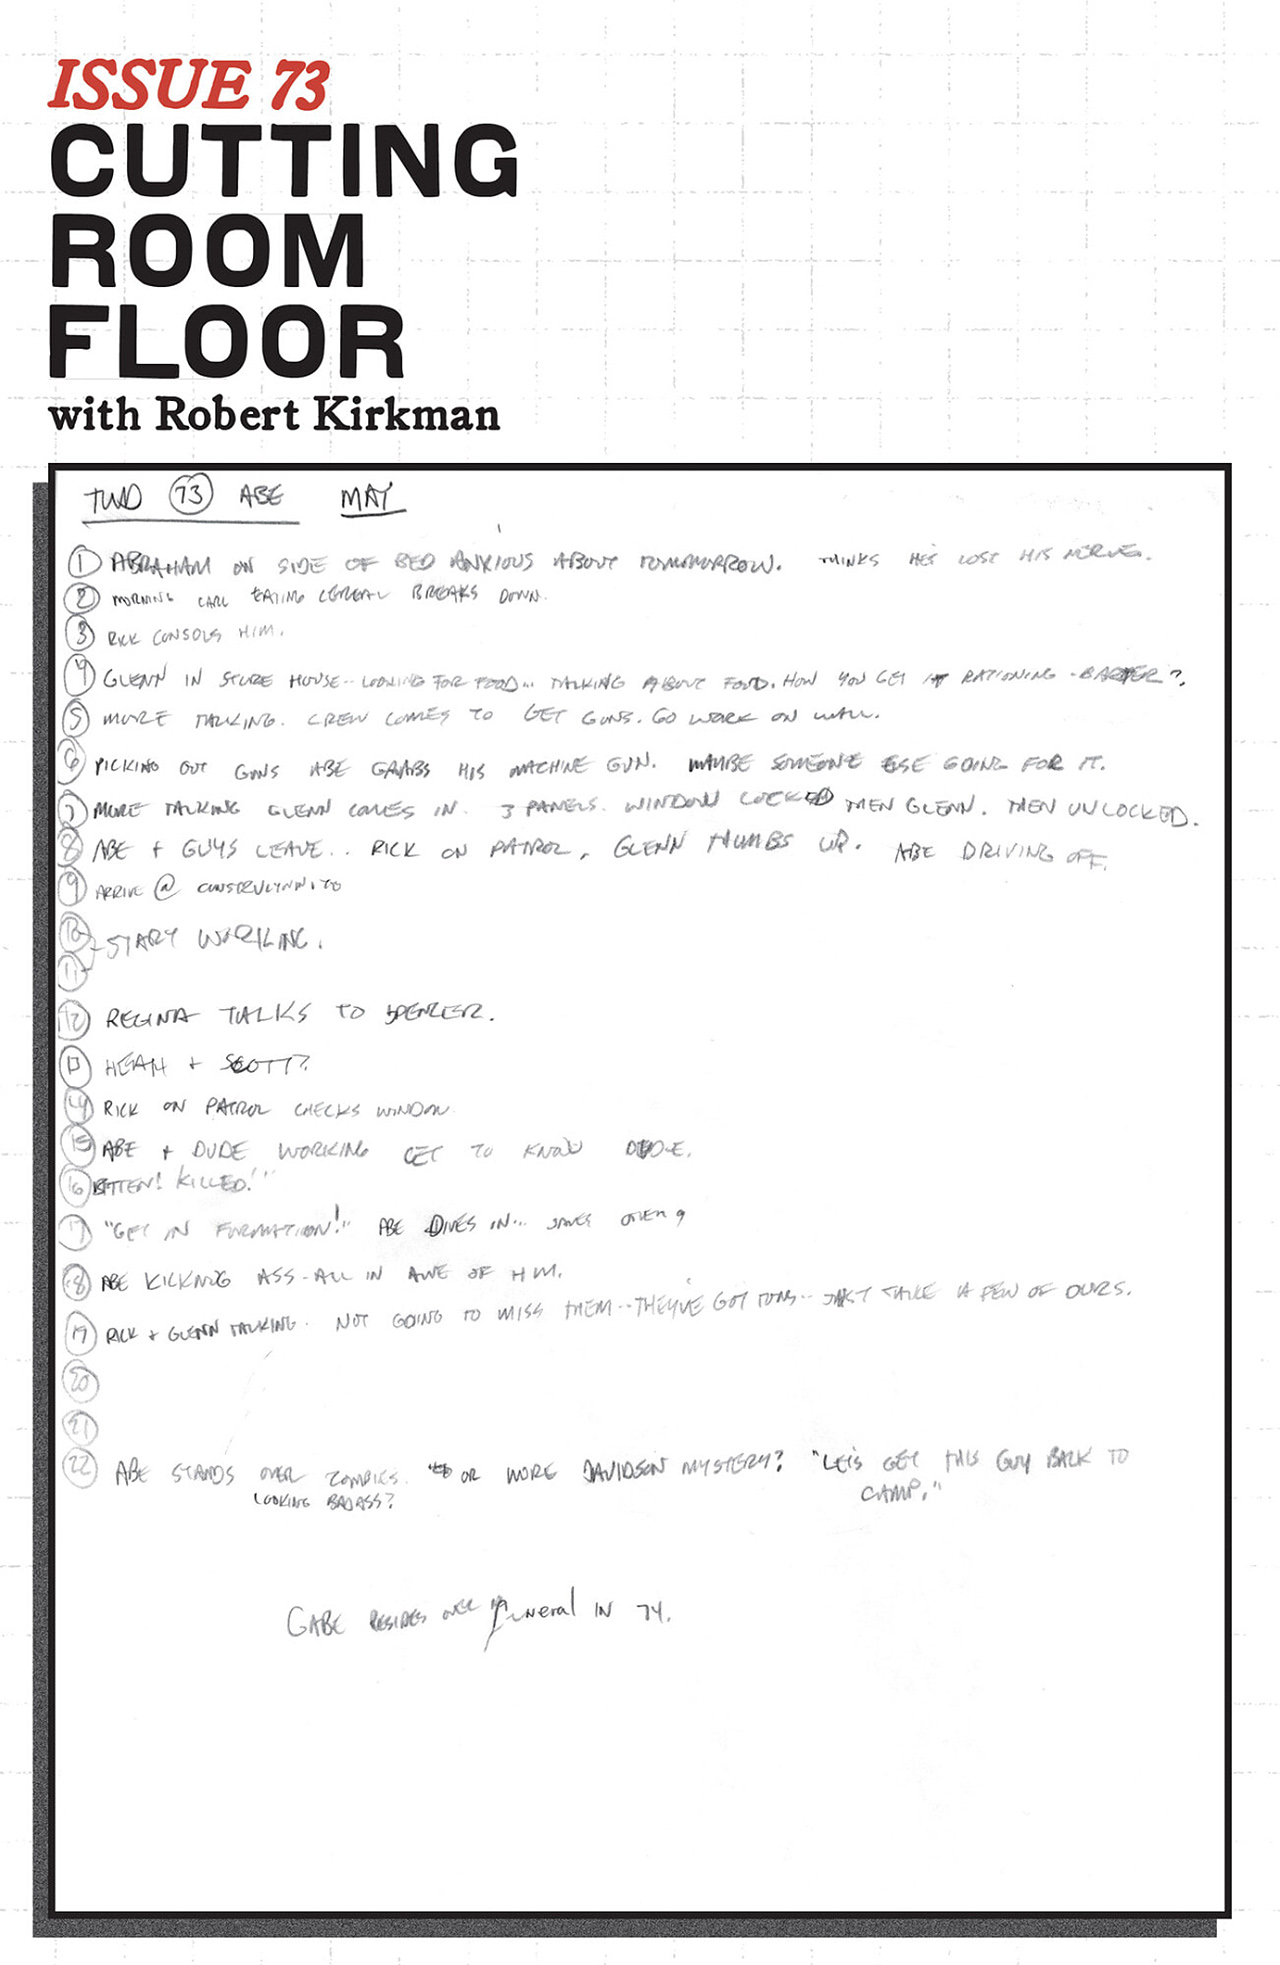 ISSUE 73
CUTTING
ROOM
FLOOR
with Robert Kirkman
TWD 73 ABE MAY
1 ABRAHAM ON SIDE OF BED ANXIOUS ABOUT TOMOMORROW. THINKS HE'S LOST HIS NERVES.
2 MORNING CARL EATING CEREAL BREAKS DOWN.
3 RICK CONSOLS HIM.
4 GLENN IN STORE HOUSE.. LOOKING FOR FOOD... TALKING ABOUT FOOD. HOW YOU GET IT RATIONING - BARTER?
5 MORE TALKING. CREW COMES TO GET GUNS. GO WORK ON WALL.
6 PICKING OUT GUNS ABE GRABS HIS MACHINE GUN. MAYBE SOMEONE ELSE GOING FOR IT.
7 MORE TALKING GLENN COMES IN. 3 PANELS. WINDOW LOCKED THEN GLENN. THEN UNLOCKED.
8 ABE + GUYS LEAVE.. RICK ON PATROL, GLENN THUMBS UP. ABE DRIVING OFF.
9 ARRIVE @
10 START WORKING.
11
12 REGINA TALKS TO SPENCER.
13 HEATH + SCOTT?
14 RICK ON PATROL CHECKS WINDOW
15 ABE + DUDE WORKING GET TO KNOW DUDE.
16 BITTEN! KILLED!"
17 "GET IN FORMATION!" ABE DIVES IN... SAVES
18 ABE KICKNG ASS - ALL IN AWE OF HIM.
19 RICK + GLENN TALKING. NOT GOING TO MISS THEM.. THEY'VE GOT TONS.. JUST TAKE A FEW OF OURS.
20
21
22 ABE STANDS OVER ZOMBIES. OR MORE DAVIDSON MYSTERY? "LET'S GET THIS GUY BACK TO
LOOKING BADASS? CAMP."
GABE RESIDES OVER funeral IN 74.